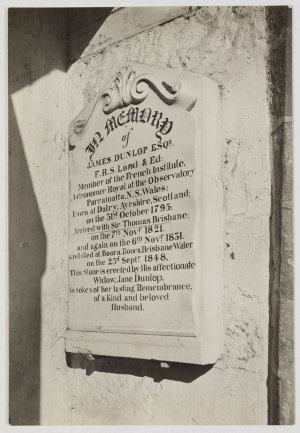 In Memory
of
JAMES DUNLOP ESQR.
F.R.S. Lond & Ed:
Member of the French Institute,
Astronomer Royal at the Observatory
Parramatta, N.S. Wales:
Born at Dalry, Ayrshire, Scotland:
on the 31st October 1795:
Arrived with Sir Thomas Brisbane:
on the 7th Novr 1821.
and again on the 6th Novr 1831.
and died at Boora, Boora, Brisbane Water
on the 23d Septr 1848.
This Stone is erected by His affectionate
Widow, Jane Dunlop.
in token of her lasting Remembrance,
of a Kind and beloved
Husband.